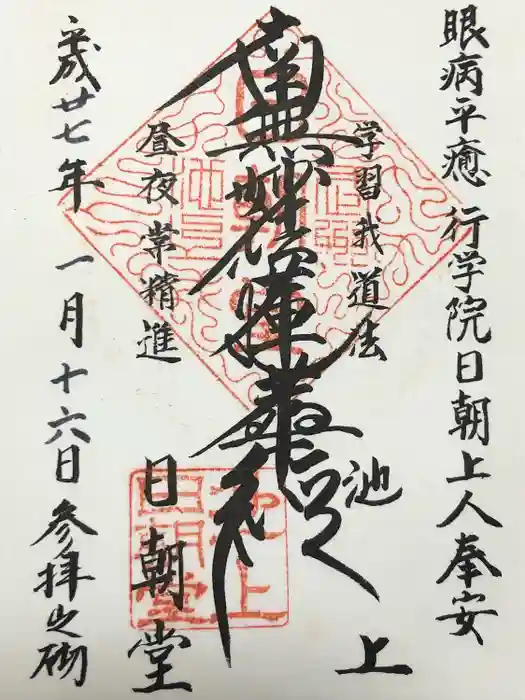 眼病平癒 行学院日朝上人奉安
学習我道法
池上
南無妙法蓮華経
昼夜常精進
日朝堂
平成廿七年 一月十六日 参拝之砌
池上
日朝堂